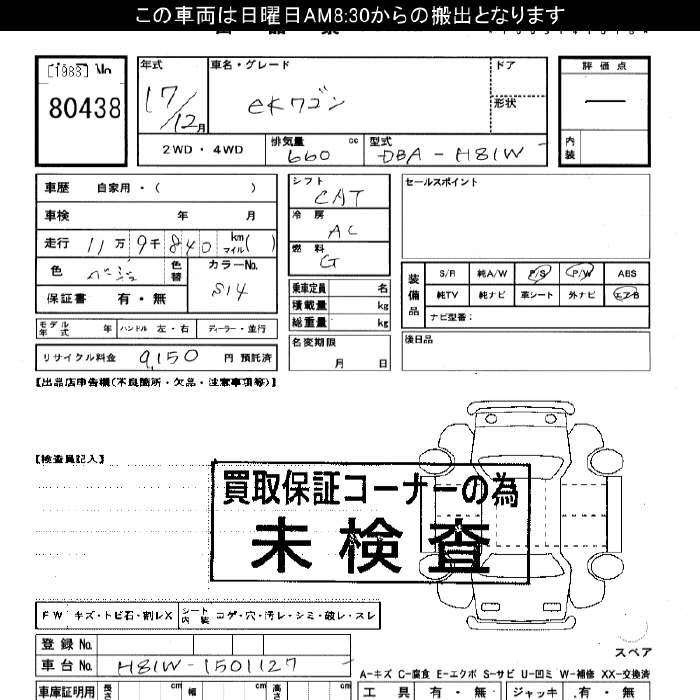 この車両は日曜日AM8:30からの搬出となります
[1983] No
80438
年式
車名・グレード
ドア
評価点
17/12月
eKワゴン
形状
2WD・4WD
排気量
cc
660
型式
DBA-H81W
内装
車歴 自家用・( )
車検 年 月
走行 11万9千840 km マイル( )
色 ベージュ 色替 カラーNo. S14
保証書 有・無
シフト
CAT
冷房
AC
燃料
G
乗車定員 名
積載量 kg
総重量 kg
セールスポイント
装備品
S/R 純A/W P/S P/W ABS
純TV 純ナビ 革シート 外ナビ エアB
ナビ型番:
モデル年式 年 ハンドル 左・右 ディーラー・並行
名変期限
月 日
後日品
リサイクル料金 9,150 円 預託済
【出品店申告欄(不良箇所・欠品・注意事項等)】
【検査員記入】
買取保証コーナーの為
未検査
FW キズ・トビ石・割レX シート内装 コゲ・穴・汚レ・シミ・破レ・スレ
登録 No.
スペア
車台 No. H81W-1501127
A-キズ C-腐食 E-エクボ S-サビ U-凹ミ W-補修 XX-交換済
車庫証明用 長さ cm 幅 cm 高さ cm
工具 有・無 ジャッキ 有・無